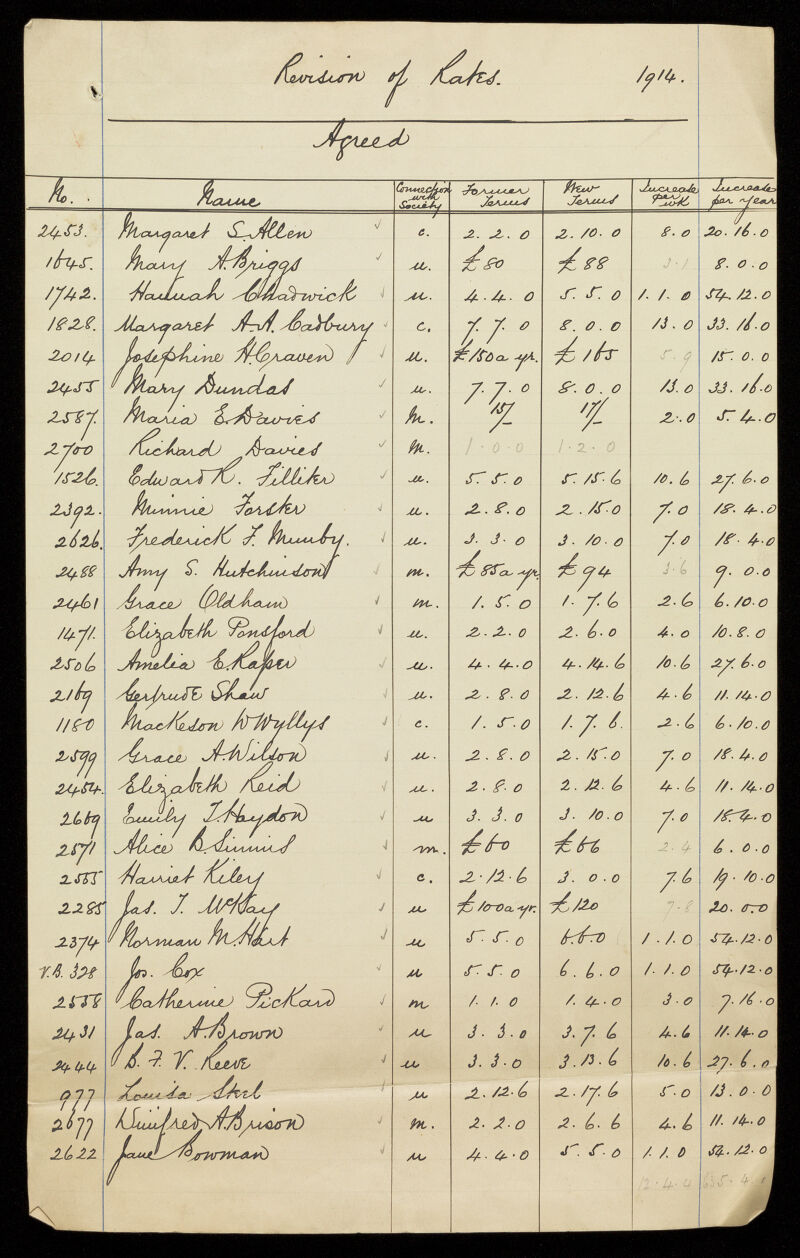 Revision of Rates. 1914.
Agreed
No. Name Connection with Society Former Terms New Terms Increase per wk Increase per year
2453. Margaret S. Allen ✓ c. 2.2.0 2.10.0 8.0 20.16.0
1645. Mary A. Briggs ✓ u. £80 £88 3.1 8.0.0
1742. Hannah Chadwick ✓ u. 4.4.0 5.5.0 1.1.0 54.12.0
1828. Margaret A.A. Cadbury ✓ c. 7.7.0 8.0.0 13.0 33.16.0
2014 Josephine H. Craven ✓ u. £150 a yr. £165 5.9 15.0.0
2455 Mary Dundas ✓ u. 7.7.0 8.0.0 13.0 33.16.0
2587. Maria E. Davies ✓ M. 15/- 17/- 2.0 5.4.0
2700 Richard Davies ✓ M. 1.0.0 1.2.0
1526. Edward R. Filliter ✓ u. 5.5.0 5.15.6 10.6 27.6.0
2392. Minnie Forster ✓ u. 2.8.0 2.15.0 7.0 18.4.0
2626. Frederick F. Munby. ✓ u. 3.3.0 3.10.0 7.0 18.4.0
2488 Amy S. Hutchinson ✓ m. £85 a yr. £94 3.6 9.0.0
2461 Grace Oldham ✓ m. 1.5.0 1.7.6 2.6 6.10.0
1471. Elizabeth Ponsford ✓ u. 2.2.0 2.6.0 4.0 10.8.0
2506 Amelia E. Raper ✓ u. 4.4.0 4.14.6 10.6 27.6.0
2169 Gertrude Shaw ✓ u. 2.8.0 2.12.6 4.6 11.14.0
1180 Mackeson W Wyllys ✓ c. 1.5.0 1.7.6. 2.6 6.10.0
2599 Grace A. Wilson ✓ u. 2.8.0 2.15.0 7.0 18.4.0
2454. Elizabeth Reid ✓ u. 2.8.0 2.12.6 4.6 11.14.0
2669 Emily T. Haydon ✓ u 3.3.0 3.10.0 7.0 18.4.0
2571 Alice B. Simms ✓ m. £60 £66 2.4 6.0.0
2555 Harriet Kiley ✓ c. 2.12.6 3.0.0 7.6 19.10.0
2285 Jas. T. McKay ✓ u £100 a yr. £120 7.8 20.0.0
2374 Norman M. Hart ✓ u 5.5.0 6.6.0 1.1.0 54.12.0
V.B. 328 Jos. Cox ✓ u 5.5.0 6.6.0 1.1.0 54.12.0
2558 Catherine Pickard ✓ m 1.1.0 1.4.0 3.0 7.16.0
2431 Jas. A. Brown ✓ u 3.3.0 3.7.6 4.6 11.14.0
2444 B. F. V. Reeve ✓ u 3.3.0 3.13.6 10.6 27.6.0
977 Louisa Steel ✓ u 2.12.6 2.17.6 5.0 13.0.0
2677 Winifred A. Brison ✓ m. 2.2.0 2.6.6 4.6 11.14.0
2622 Jane Bowman ✓ u 4.4.0 5.5.0 1.1.0 54.12.0
12.4.4 635.4.